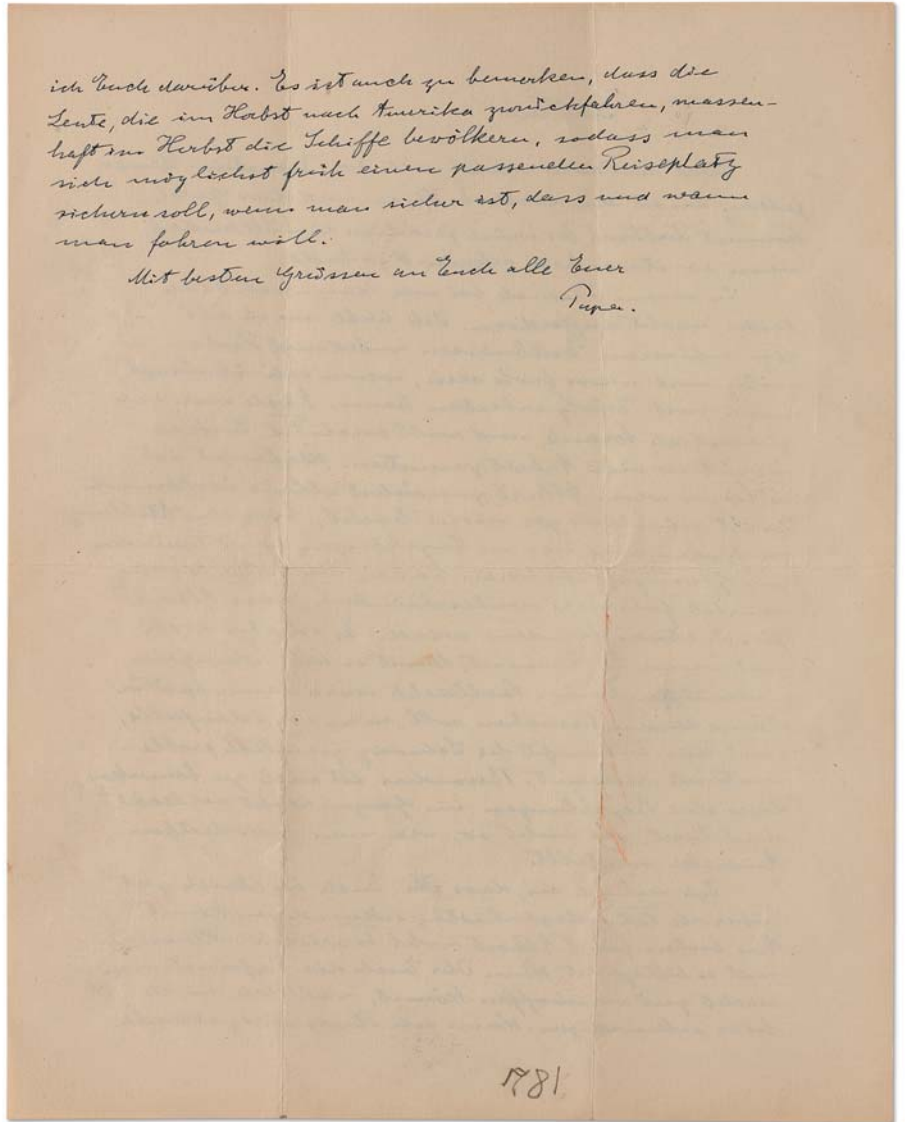 ich Euch darüber. Es ist auch zu bemerken, dass die
Leute, die im Herbst nach Amerika zurückfahren, massen-
haft im Herbst die Schiffe bevölkern, sodass man
sich möglichst früh einen passenden Reiseplatz
sichern soll, wenn man sicher ist, dass und wann
man fahren will.
Mit besten Grüssen an Euch alle Euer
Papa.
1781